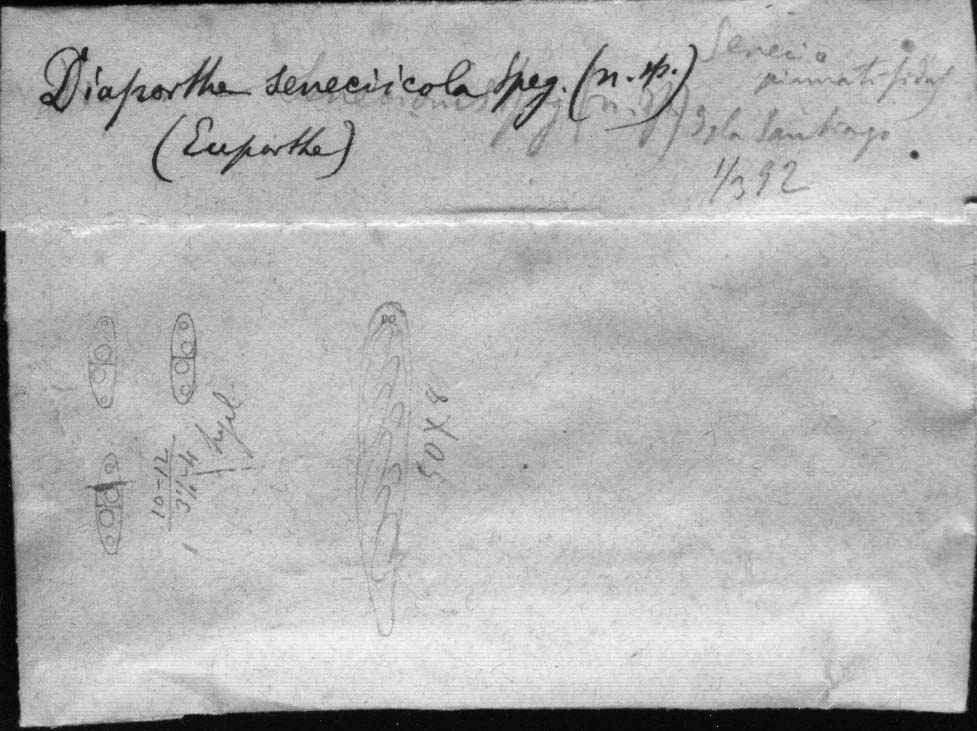 Diaporthe seneciicola Speg. (n. sp.)
(Euporthe)
Senecio
pinnatifidus
Isla Santiago
1/3 92
10-12
3½-4
hyal.
50 X 8